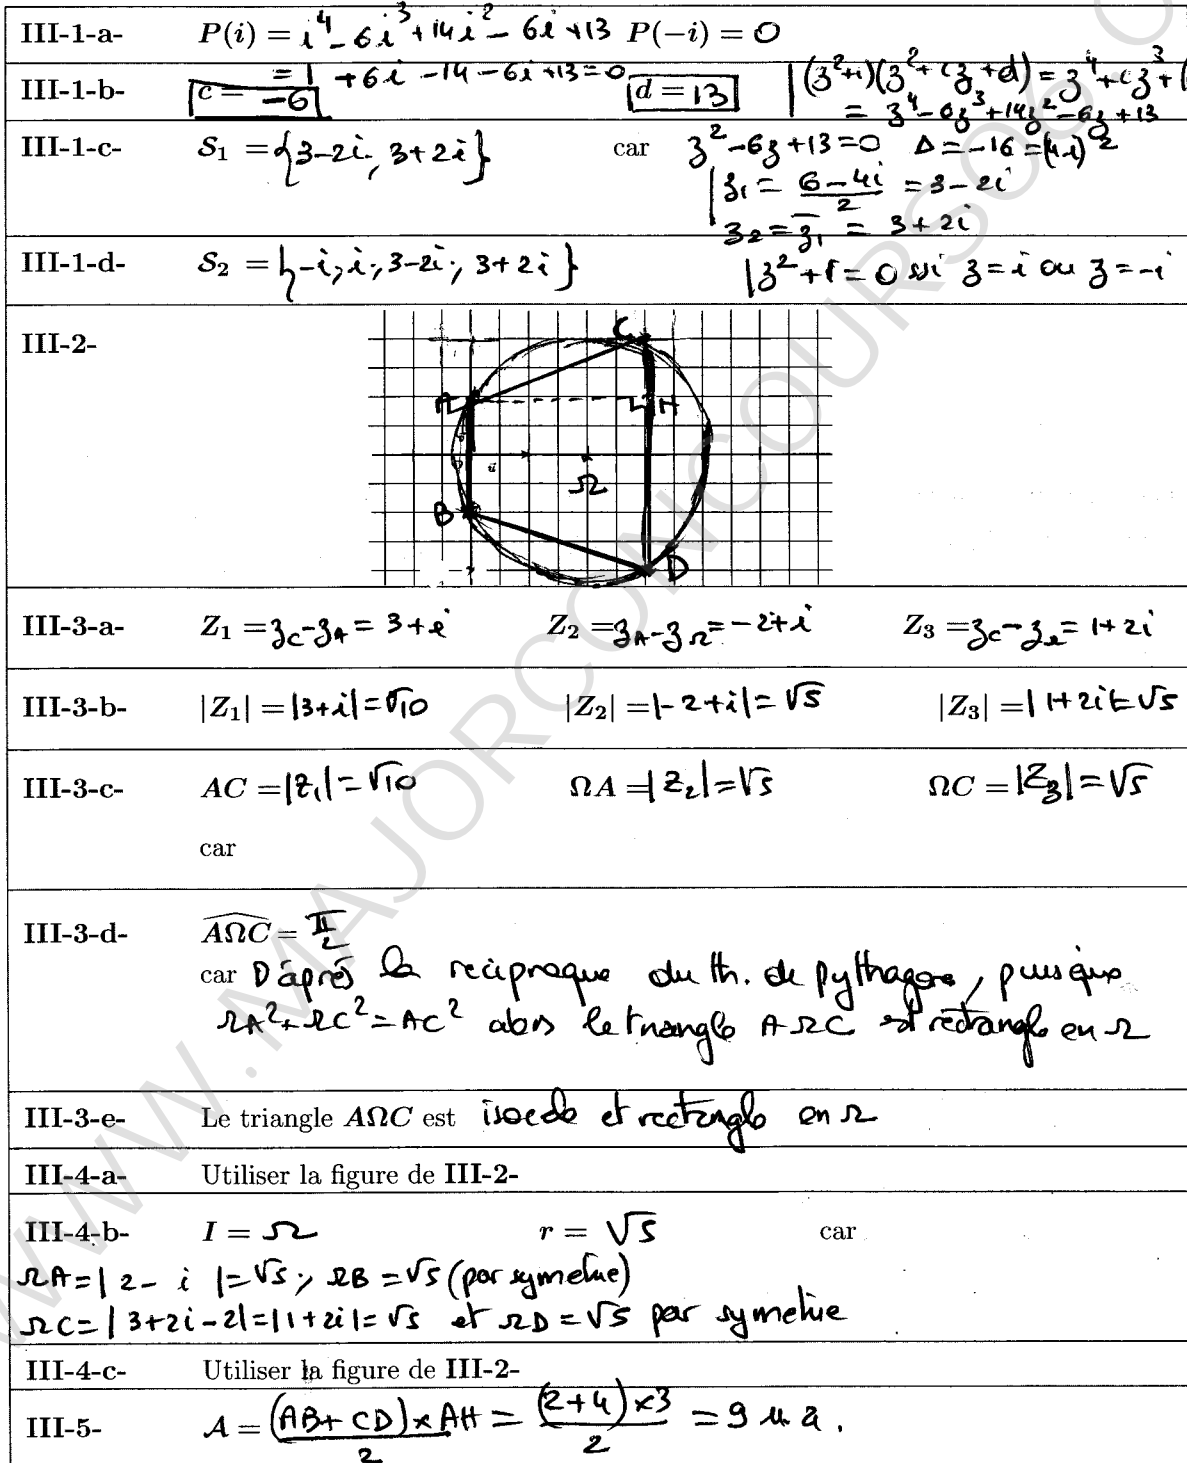 III-1-a- P(i) = i⁴ - 6i³ + 14i² - 6i + 13 P(-i) = 0
= 1 + 6i - 14 - 6i + 13 = 0
III-1-b- c = -6 d = 13 (z²+1)(z²+cz+d) = z⁴+cz³+(
= z⁴-6z³+14z²-6z+13
III-1-c- S₁ = {3-2i ; 3+2i} car z²-6z+13=0 Δ=-16=(4i)²
z₁ = (6-4i)/2 = 3-2i
z₂ = z̄₁ = 3+2i
III-1-d- S₂ = {-i ; i ; 3-2i ; 3+2i} z²+1=0 ssi z=i ou z=-i
III-2-
C
A H
u
Ω
B
D
III-3-a- Z₁ = z_C-z_A = 3+i Z₂ = z_A-z_Ω = -2+i Z₃ = z_C-z_Ω = 1+2i
III-3-b- |Z₁| = |3+i| = √10 |Z₂| = |-2+i| = √5 |Z₃| = |1+2i| = √5
III-3-c- AC = |Z₁| = √10 ΩA = |Z₂| = √5 ΩC = |Z₃| = √5
car
III-3-d- AΩC = π/2
car D'après la reciproque du th. de pythagore, puisque
ΩA²+ΩC²=AC² alors le triangle AΩC est rectangle en Ω
III-3-e- Le triangle AΩC est isocele et rectangle en Ω
III-4-a- Utiliser la figure de III-2-
III-4-b- I = Ω r = √5 car
ΩA=|2-i|=√5 ; ΩB=√5 (par symetrie)
ΩC=|3+2i-2|=|1+2i|=√5 et ΩD=√5 par symetrie
III-4-c- Utiliser la figure de III-2-
III-5- A = (AB+CD)×AH/2 = (2+4)×3/2 = 9 u a.
WWW.MAJORCONCOURS06.C